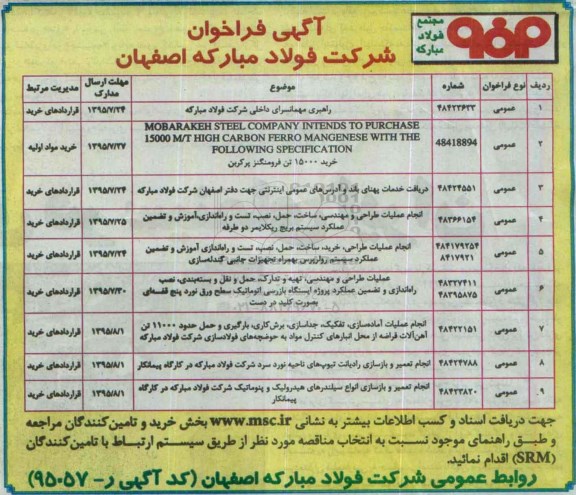 مجتمع
فولاد
مبارکه
آگهی فراخوان
شرکت فولاد مبارکه اصفهان
ردیف نوع فراخوان شماره موضوع مهلت ارسال مدارک مدیریت مرتبط
۱ عمومی ۴۸۴۲۳۶۳۳ راهبری مهمانسرای داخلی شرکت فولاد مبارکه ۱۳۹۵/۷/۲۴ قراردادهای خرید
۲ عمومی 48418894 MOBARAKEH STEEL COMPANY INTENDS TO PURCHASE
15000 M/T HIGH CARBON FERRO MANGENESE WITH THE
FOLLOWING SPECIFICATION
خرید ۱۵۰۰۰ تن فرومنگنز پرکربن ۱۳۹۵/۷/۲۷ خرید مواد اولیه
۳ عمومی ۴۸۴۲۴۵۵۱ دریافت خدمات پهنای باند و آدرس‌های عمومی اینترنتی جهت دفتر اصفهان شرکت فولاد مبارکه ۱۳۹۵/۷/۲۴ قراردادهای خرید
۴ عمومی ۴۸۳۶۶۱۵۴ انجام عملیات طراحی و مهندسی، ساخت، حمل، نصب، تست و راه‌اندازی،آموزش و تضمین
عملکرد سیستم بریج ریکلایمر دو طرفه ۱۳۹۵/۷/۲۵ قراردادهای خرید
۵ عمومی ۴۸۴۱۷۹۲۵۴
۸۴۱۷۹۲۱ انجام عملیات طراحی، خرید، ساخت، حمل، نصب، تست و راه‌اندازی آموزش و تضمین
عملکرد سیستم رولرپرس بهمراه تجهیزات جانبی گندله‌سازی ۱۳۹۵/۷/۲۴ قراردادهای خرید
۶ عمومی ۴۸۳۲۷۴۱۱
۴۸۲۹۵۸۷۵ عملیات طراحی و مهندسی، تهیه و تدارک، حمل و نقل و بسته‌بندی، نصب
راه‌اندازی و تضمین عملکرد پروژه ایستگاه بازرسی اتوماتیک سطح ورق نورد پنج قفسه‌ای
بصورت کلید در دست ۱۳۹۵/۷/۳۰ قراردادهای خرید
۷ عمومی ۴۸۴۲۲۱۵۱ انجام عملیات آماده‌سازی، تفکیک، جداسازی، برش‌کاری، بارگیری و حمل حدود ۱۱۰۰۰ تن
آهن‌آلات قراضه از محل انبارهای کنترل مواد به حوضچه‌های فولادسازی شرکت فولاد مبارکه ۱۳۹۵/۸/۱ قراردادهای خرید
۸ عمومی ۴۸۴۲۴۷۸۸ انجام تعمیر و بازسازی رادیانت تیوپ‌های ناحیه نورد سرد شرکت فولاد مبارکه در کارگاه پیمانکار ۱۳۹۵/۸/۱ قراردادهای خرید
۹ عمومی ۴۸۴۲۳۸۲۰ انجام تعمیر و بازسازی انواع سیلندرهای هیدرولیک و پنوماتیک شرکت فولاد مبارکه در کارگاه
پیمانکار ۱۳۹۵/۸/۱ قراردادهای خرید
جهت دریافت اسناد و کسب اطلاعات بیشتر به نشانی www.msc.ir بخش خرید و تامین‌کنندگان مراجعه
و طبق راهنمای موجود نسبت به انتخاب مناقصه مورد نظر از طریق سیستم ارتباط با تامین‌کنندگان
(SRM) اقدام نمائید.
روابط عمومی شرکت فولاد مبارکه اصفهان (کد آگهی ر- ۹۵۰۵۷)